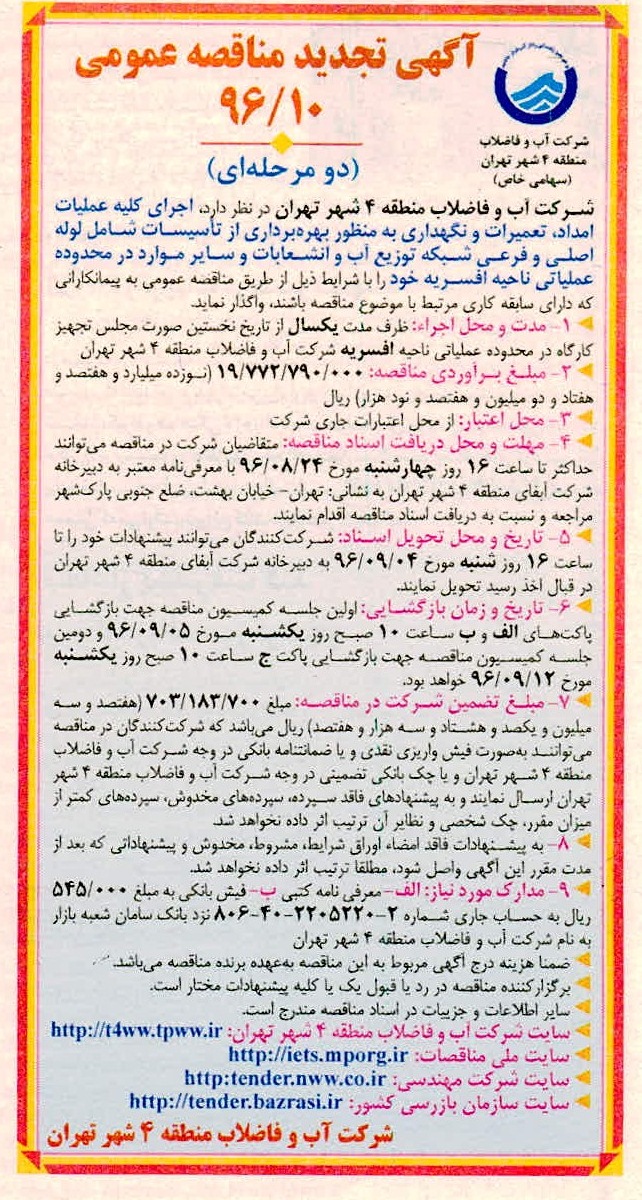 آگهی تجدید مناقصه عمومی
۹۶/۱۰
(دو مرحله‌ای)
شرکت آب و فاضلاب
منطقه ۴ شهر تهران
(سهامی خاص)
شرکت آب و فاضلاب منطقه ۴ شهر تهران در نظر دارد، اجرای کلیه عملیات
امداد، تعمیرات و نگهداری به منظور بهره‌برداری از تأسیسات شامل لوله
اصلی و فرعی شبکه توزیع آب و انشعابات و سایر موارد در محدوده
عملیاتی ناحیه افسریه خود را با شرایط ذیل از طریق مناقصه عمومی به پیمانکارانی
که دارای سابقه کاری مرتبط با موضوع مناقصه باشند، واگذار نماید.
۱- مدت و محل اجراء: ظرف مدت یکسال از تاریخ نخستین صورت مجلس تجهیز
کارگاه در محدوده عملیاتی ناحیه افسریه شرکت آب و فاضلاب منطقه ۴ شهر تهران
۲- مبلغ برآوردی مناقصه: ۱۹/۷۷۲/۷۹۰/۰۰۰ (نوزده میلیارد و هفتصد و
هفتاد و دو میلیون و هفتصد و نود هزار) ریال
۳- محل اعتبار: از محل اعتبارات جاری شرکت
۴- مهلت و محل دریافت اسناد مناقصه: متقاضیان شرکت در مناقصه می‌توانند
حداکثر تا ساعت ۱۶ روز چهارشنبه مورخ ۹۶/۰۸/۲۴ با معرفی‌نامه معتبر به دبیرخانه
شرکت آبفای منطقه ۴ شهر تهران به نشانی: تهران- خیابان بهشت، ضلع جنوبی پارک‌شهر
مراجعه و نسبت به دریافت اسناد مناقصه اقدام نمایند.
۵- تاریخ و محل تحویل اسناد: شرکت‌کنندگان می‌توانند پیشنهادات خود را تا
ساعت ۱۶ روز شنبه مورخ ۹۶/۰۹/۰۴ به دبیرخانه شرکت آبفای منطقه ۴ شهر تهران
در قبال اخذ رسید تحویل نمایند.
۶- تاریخ و زمان بازگشایی: اولین جلسه کمیسیون مناقصه جهت بازگشایی
پاکت‌های الف و ب ساعت ۱۰ صبح روز یکشنبه مورخ ۹۶/۰۹/۰۵ و دومین
جلسه کمیسیون مناقصه جهت بازگشایی پاکت ج ساعت ۱۰ صبح روز یکشنبه
مورخ ۹۶/۰۹/۱۲ خواهد بود.
۷- مبلغ تضمین شرکت در مناقصه: مبلغ ۷۰۳/۱۸۳/۷۰۰ (هفتصد و سه
میلیون و یکصد و هشتاد و سه هزار و هفتصد) ریال می‌باشد که شرکت‌کنندگان در مناقصه
می‌توانند به‌صورت فیش واریزی نقدی و یا ضمانتنامه بانکی در وجه شرکت آب و فاضلاب
منطقه ۴ شهر تهران و یا چک بانکی تضمینی در وجه شرکت آب و فاضلاب منطقه ۴ شهر
تهران ارسال نمایند و به پیشنهادهای فاقد سپرده، سپرده‌های مخدوش، سپرده‌های کمتر از
میزان مقرر، چک شخصی و نظایر آن ترتیب اثر داده نخواهد شد.
۸- به پیشنهادات فاقد امضاء اوراق شرایط، مشروط، مخدوش و پیشنهاداتی که بعد از
مدت مقرر این آگهی واصل شود، مطلقا ترتیب اثر داده نخواهد شد.
۹- مدارک مورد نیاز: الف- معرفی نامه کتبی ب- فیش بانکی به مبلغ ۵۴۵/۰۰۰
ریال به حساب جاری شماره ۲-۲۲۰۵۲۲۰-۴۰-۸۰۶ نزد بانک سامان شعبه بازار
به نام شرکت آب و فاضلاب منطقه ۴ شهر تهران
ضمنا هزینه درج آگهی مربوط به این مناقصه به‌عهده برنده مناقصه می‌باشد.
برگزارکننده مناقصه در رد یا قبول یک یا کلیه پیشنهادات مختار است.
سایر اطلاعات و جزییات در اسناد مناقصه مندرج است.
سایت شرکت آب و فاضلاب منطقه ۴ شهر تهران: http://t4ww.tpww.ir
سایت ملی مناقصات: http://iets.mporg.ir
سایت شرکت مهندسی: http:tender.nww.co.ir
سایت سازمان بازرسی کشور: http://tender.bazrasi.ir
شرکت آب و فاضلاب منطقه ۴ شهر تهران